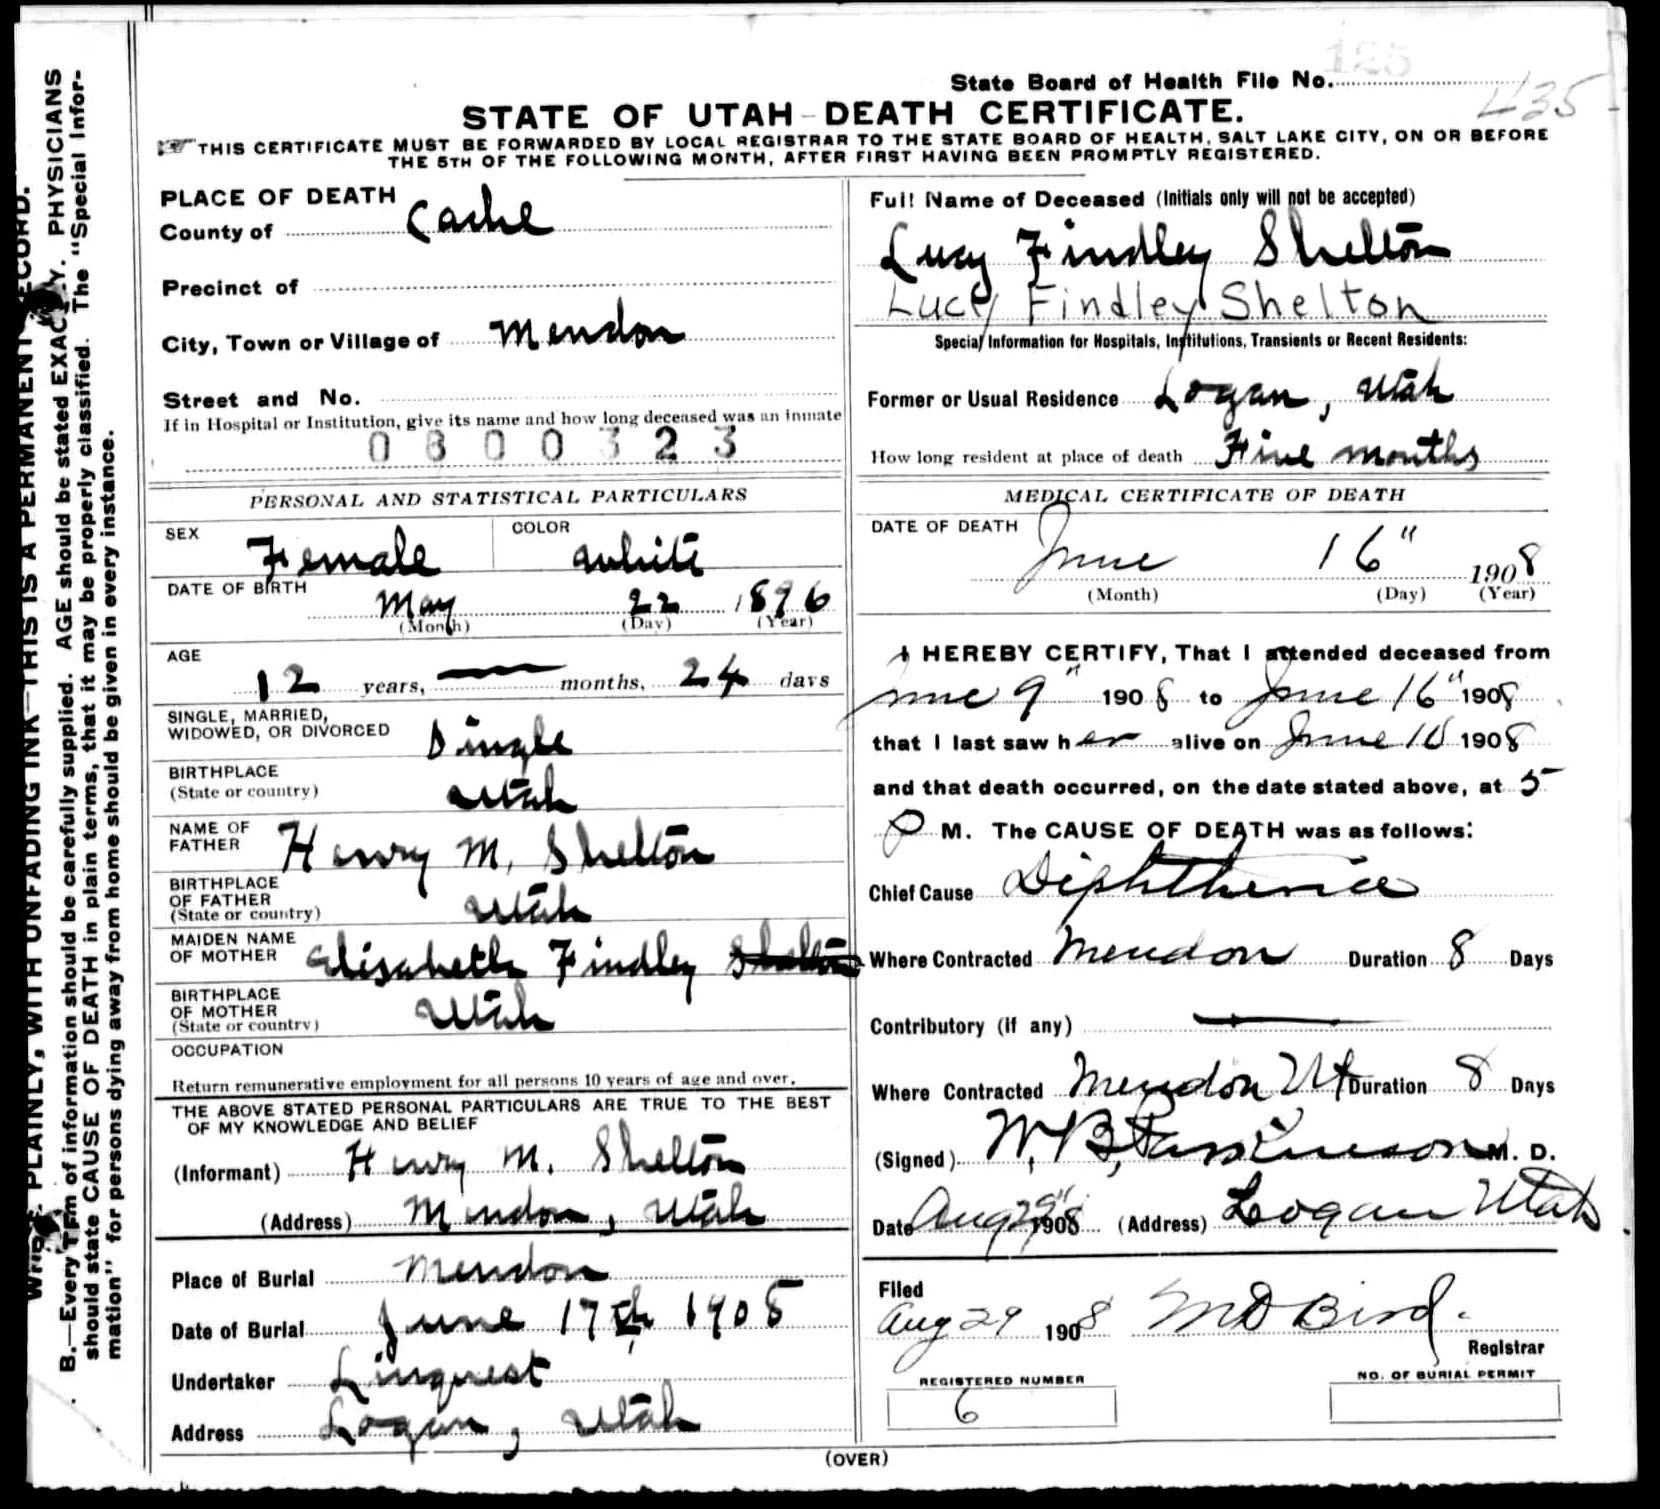 125
State Board of Health File No. 435
STATE OF UTAH-DEATH CERTIFICATE.
THIS CERTIFICATE MUST BE FORWARDED BY LOCAL REGISTRAR TO THE STATE BOARD OF HEALTH, SALT LAKE CITY, ON OR BEFORE
THE 5TH OF THE FOLLOWING MONTH, AFTER FIRST HAVING BEEN PROMPTLY REGISTERED.
PLAINLY, WITH UNFADING INK—THIS IS A PERMANENT RECORD.
B.—Every item of information should be carefully supplied. AGE should be stated EXACTLY. PHYSICIANS
should state CAUSE OF DEATH in plain terms, that it may be properly classified. The "Special Infor-
mation" for persons dying away from home should be given in every instance.
PLACE OF DEATH
County of Cache
Precinct of
City, Town or Village of Mendon
Street and No.
If in Hospital or Institution, give its name and how long deceased was an inmate
0800323
PERSONAL AND STATISTICAL PARTICULARS
SEX Female COLOR White
DATE OF BIRTH
May 22 1896
(Month) (Day) (Year)
AGE
12 years, — months, 24 days
SINGLE, MARRIED,
WIDOWED, OR DIVORCED Single
BIRTHPLACE
(State or country) Utah
NAME OF
FATHER Henry M. Shelton
BIRTHPLACE
OF FATHER
(State or country) Utah
MAIDEN NAME
OF MOTHER Elisabeth Findley Shelton
BIRTHPLACE
OF MOTHER
(State or country) Utah
OCCUPATION
Return remunerative employment for all persons 10 years of age and over.
THE ABOVE STATED PERSONAL PARTICULARS ARE TRUE TO THE BEST
OF MY KNOWLEDGE AND BELIEF
(Informant) Henry M. Shelton
(Address) Mendon, Utah
Place of Burial Mendon
Date of Burial June 17th 1908
Undertaker Linquest
Address Logan, Utah
Full Name of Deceased (Initials only will not be accepted)
Lucy Findley Shelton
Lucy Findley Shelton
Special Information for Hospitals, Institutions, Transients or Recent Residents:
Former or Usual Residence Logan, Utah
How long resident at place of death Five months
MEDICAL CERTIFICATE OF DEATH
DATE OF DEATH
June 16" 1908
(Month) (Day) (Year)
I HEREBY CERTIFY, That I attended deceased from
June 9" 1908 to June 16" 1908
that I last saw her alive on June 1908
and that death occurred, on the date stated above, at 5
P M. The CAUSE OF DEATH was as follows:
Chief Cause Diphtheria
Where Contracted Mendon Duration 8 Days
Contributory (If any) —
Where Contracted Mendon Ut Duration 8 Days
(Signed) W. B. Parkinson M. D.
Date Aug 29" 1908 (Address) Logan Utah
Filed
Aug 29 1908 M D Bird.
Registrar
REGISTERED NUMBER
6
NO. OF BURIAL PERMIT
(OVER)